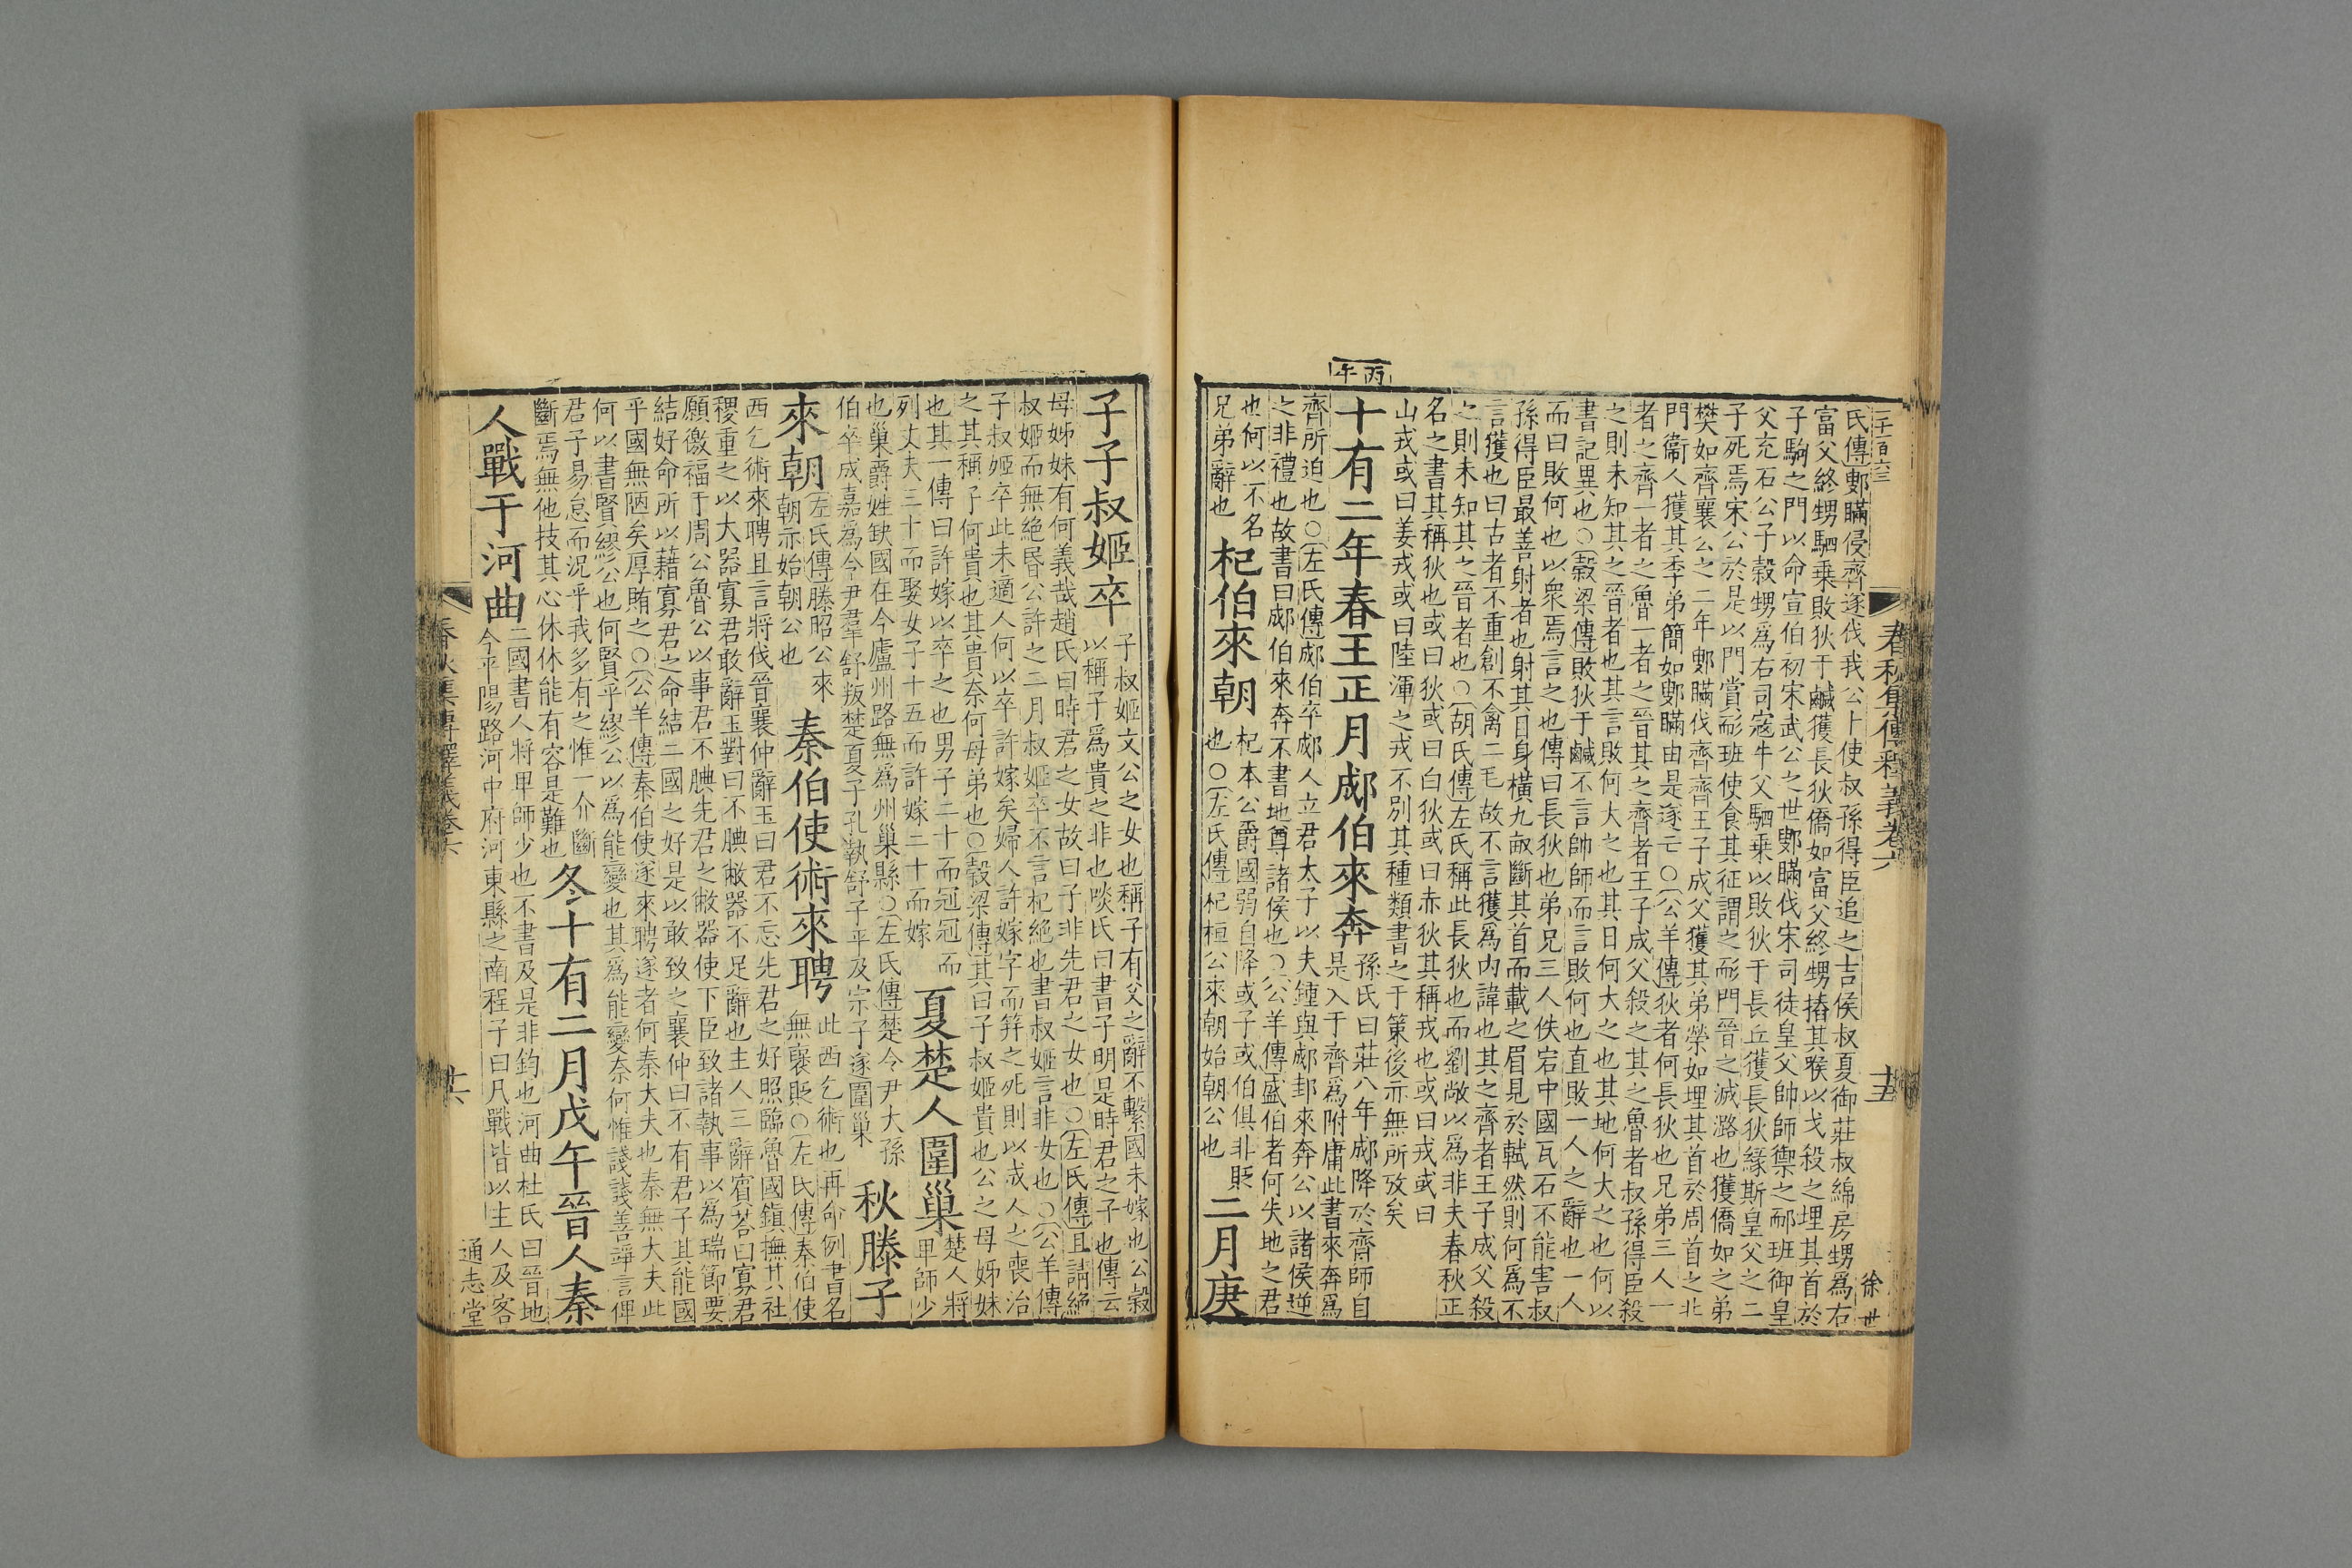 二千百六三
春秋集傳釋義卷六
十五
徐世
氏傳鄋瞞侵齊遂伐我公卜使叔孫得臣追之吉侯叔夏御莊叔綿房甥爲右
富父終甥駟乗敗狄于鹹獲長狄僑如富父終甥摏其喉以戈殺之埋其首於
子駒之門以命宣伯初宋武公之世鄋瞞伐宋司徒皇父帥師禦之耏班御皇
父充石公子榖甥爲右司寇牛父駟乗以敗狄于長丘獲長狄緣斯皇父之二
子死焉宋公於是以門賞耏班使食其征謂之耏門晉之滅潞也獲僑如之弟
樊如齊襄公之二年鄋瞞伐齊齊王子成父獲其弟榮如埋其首於周首之北
門衞人獲其季弟簡如鄋瞞由是遂亡○公羊傳狄者何長狄也兄弟三人一
者之齊一者之魯一者之晉其之齊者王子成父殺之其之魯者叔孫得臣殺
之則未知其之晉者也其言敗何大之也其日何大之也其地何大之也何以
書記異也○榖梁傳敗狄于鹹不言帥師而言敗何也直敗一人之辭也一人
而曰敗何也以衆焉言之也傳曰長狄也弟兄三人佚宕中國瓦石不能害叔
孫得臣最善射者也射其目身橫九畝斷其首而載之眉見於軾然則何爲不
言獲也曰古者不重創不禽二毛故不言獲爲内諱也其之齊者王子成父殺
之則未知其之晉者也○胡氏傳左氏稱此長狄也而劉敞以爲非夫春秋正
名之書其稱狄也或曰狄或曰白狄或曰赤狄其稱戎也或曰戎或曰
山戎或曰姜戎或曰陸渾之戎不別其種類書之于策後亦無所攷矣
丙午
十有二年春王正月郕伯來奔
孫氏曰莊八年郕降於齊師自
是入于齊爲附庸此書來奔爲
齊所迫也○左氏傳郕伯卒郕人立君太子以夫鍾與郕邽來奔公以諸侯逆
之非禮也故書曰郕伯來奔不書地尊諸侯也○公羊傳盛伯者何失地之君
也何以不名
兄弟辭也
杞伯來朝
杞本公爵國弱自降或子或伯俱非貶
也○左氏傳杞桓公來朝始朝公也
二月庚
子子叔姬卒
子叔姬文公之女也稱子有父之辭不繫國未嫁也公榖
以稱子爲貴之非也啖氏曰書子明是時君之子也傳云
母姊妹有何義哉趙氏曰時君之女故曰子非先君之女也○左氏傳且請絕
叔姬而無絕昏公許之二月叔姬卒不言杞絕也書叔姬言非女也○公羊傳
子叔姬卒此未適人何以卒許嫁矣婦人許嫁字而笄之死則以成人之喪治
之其稱子何貴也其貴奈何母弟也○榖梁傳其曰子叔姬貴也公之母姊妹
也其一傳曰許嫁以卒之也男子二十而冠冠而
列丈夫三十而娶女子十五而許嫁二十而嫁
夏楚人圍巢
楚人將
卑師少
也巢爵姓缺國在今廬州路無爲州巢縣○左氏傳楚令尹大孫
伯卒成嘉爲令尹羣舒叛楚夏子孔執舒子平及宗子遂圍巢
秋滕子
來朝
左氏傳滕昭公來
朝亦始朝公也
秦伯使術來聘
此西乞術也再命例書名
無褒貶○左氏傳秦伯使
西乞術來聘且言將伐晉襄仲辭玉曰君不忘先君之好照臨魯國鎮撫其社
稷重之以大器寡君敢辭玉對曰不腆敝器不足辭也主人三辭賓荅曰寡君
願徼福于周公魯公以事君不腆先君之敝器使下臣致諸執事以爲瑞節要
結好命所以藉寡君之命結二國之好是以敢致之襄仲曰不有君子其能國
乎國無陋矣厚賄之○公羊傳秦伯使遂來聘遂者何秦大夫也秦無大夫此
何以書賢繆公也何賢乎繆公以爲能變也其爲能變奈何惟諓諓善竫言俾
君子易怠而況乎我多有之惟一介斷
斷焉無他技其心休休能有容是難也
冬十有二月戊午晉人秦
人戰于河曲
二國書人將卑師少也不書及是非鈞也河曲杜氏曰晉地
今平陽路河中府河東縣之南程子曰凡戰皆以主人及客
春秋集傳釋義卷六
十六
通志堂